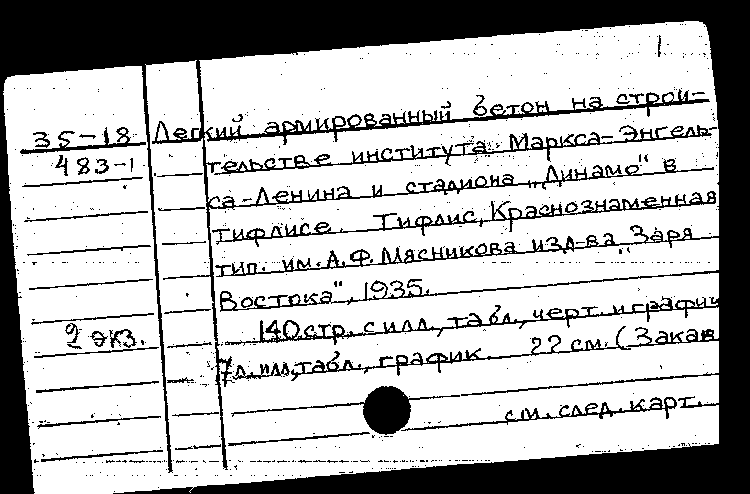 1
35-18 Легкий армированный бетон на строи-
483-1 тельстве института Маркса-Энгель-
са-Ленина и стадиона „Динамо" в
Тифлисе. Тифлис, Краснознаменная
тип. им. А.Ф. Мясникова изд-ва „Заря
Востока", 1935.
2 экз. 140 стр. с илл., табл., черт. и график
7 л. илл, табл., график. 22 см. (Закав
см. след. карт.